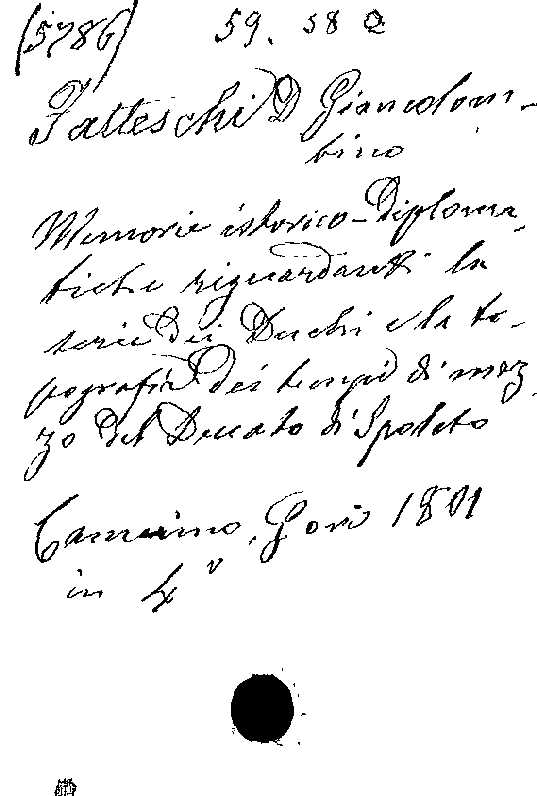 (5786) 59. 58 Q
Fatteschi D Giancolom-
bino
Memorie istorico-Diploma,
tiche riguardanti la
serie dei Duchi e la to-
pografia dei tempi di mez
zo del Ducato di Spoleto
Camerino, Gori 1801
in 4º